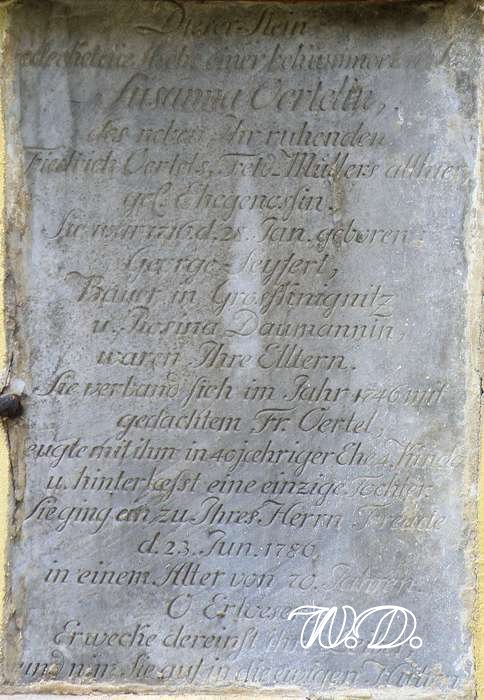 Dieser Stein
einer
Susanna Oertelin,
des neben Ihr ruhenden
Friedrich Oertels, Feld-Müllers allhier
gel. Ehegenossin.
Sie war 1716. d. 28. Jan. geboren;
George Seyfert,
Bauer in
u. Rosina Daumannin,
waren Ihre Elltern.
Sie verband sich im Jahr 1746 mit
gedachtem Fr. Oertel,
zeugte mit ihm in 40 jæhriger Ehe 4. Kinder
u. hinterlæsst eine einzige Tochter.
Sie ging an, zu Ihres Herrn Freude
d. 23. Jun. 1786
in einem Alter von 70. Jahren
O
Erwecke dereinst
und nim Sie auf in die ewigen Hütten
W.D.